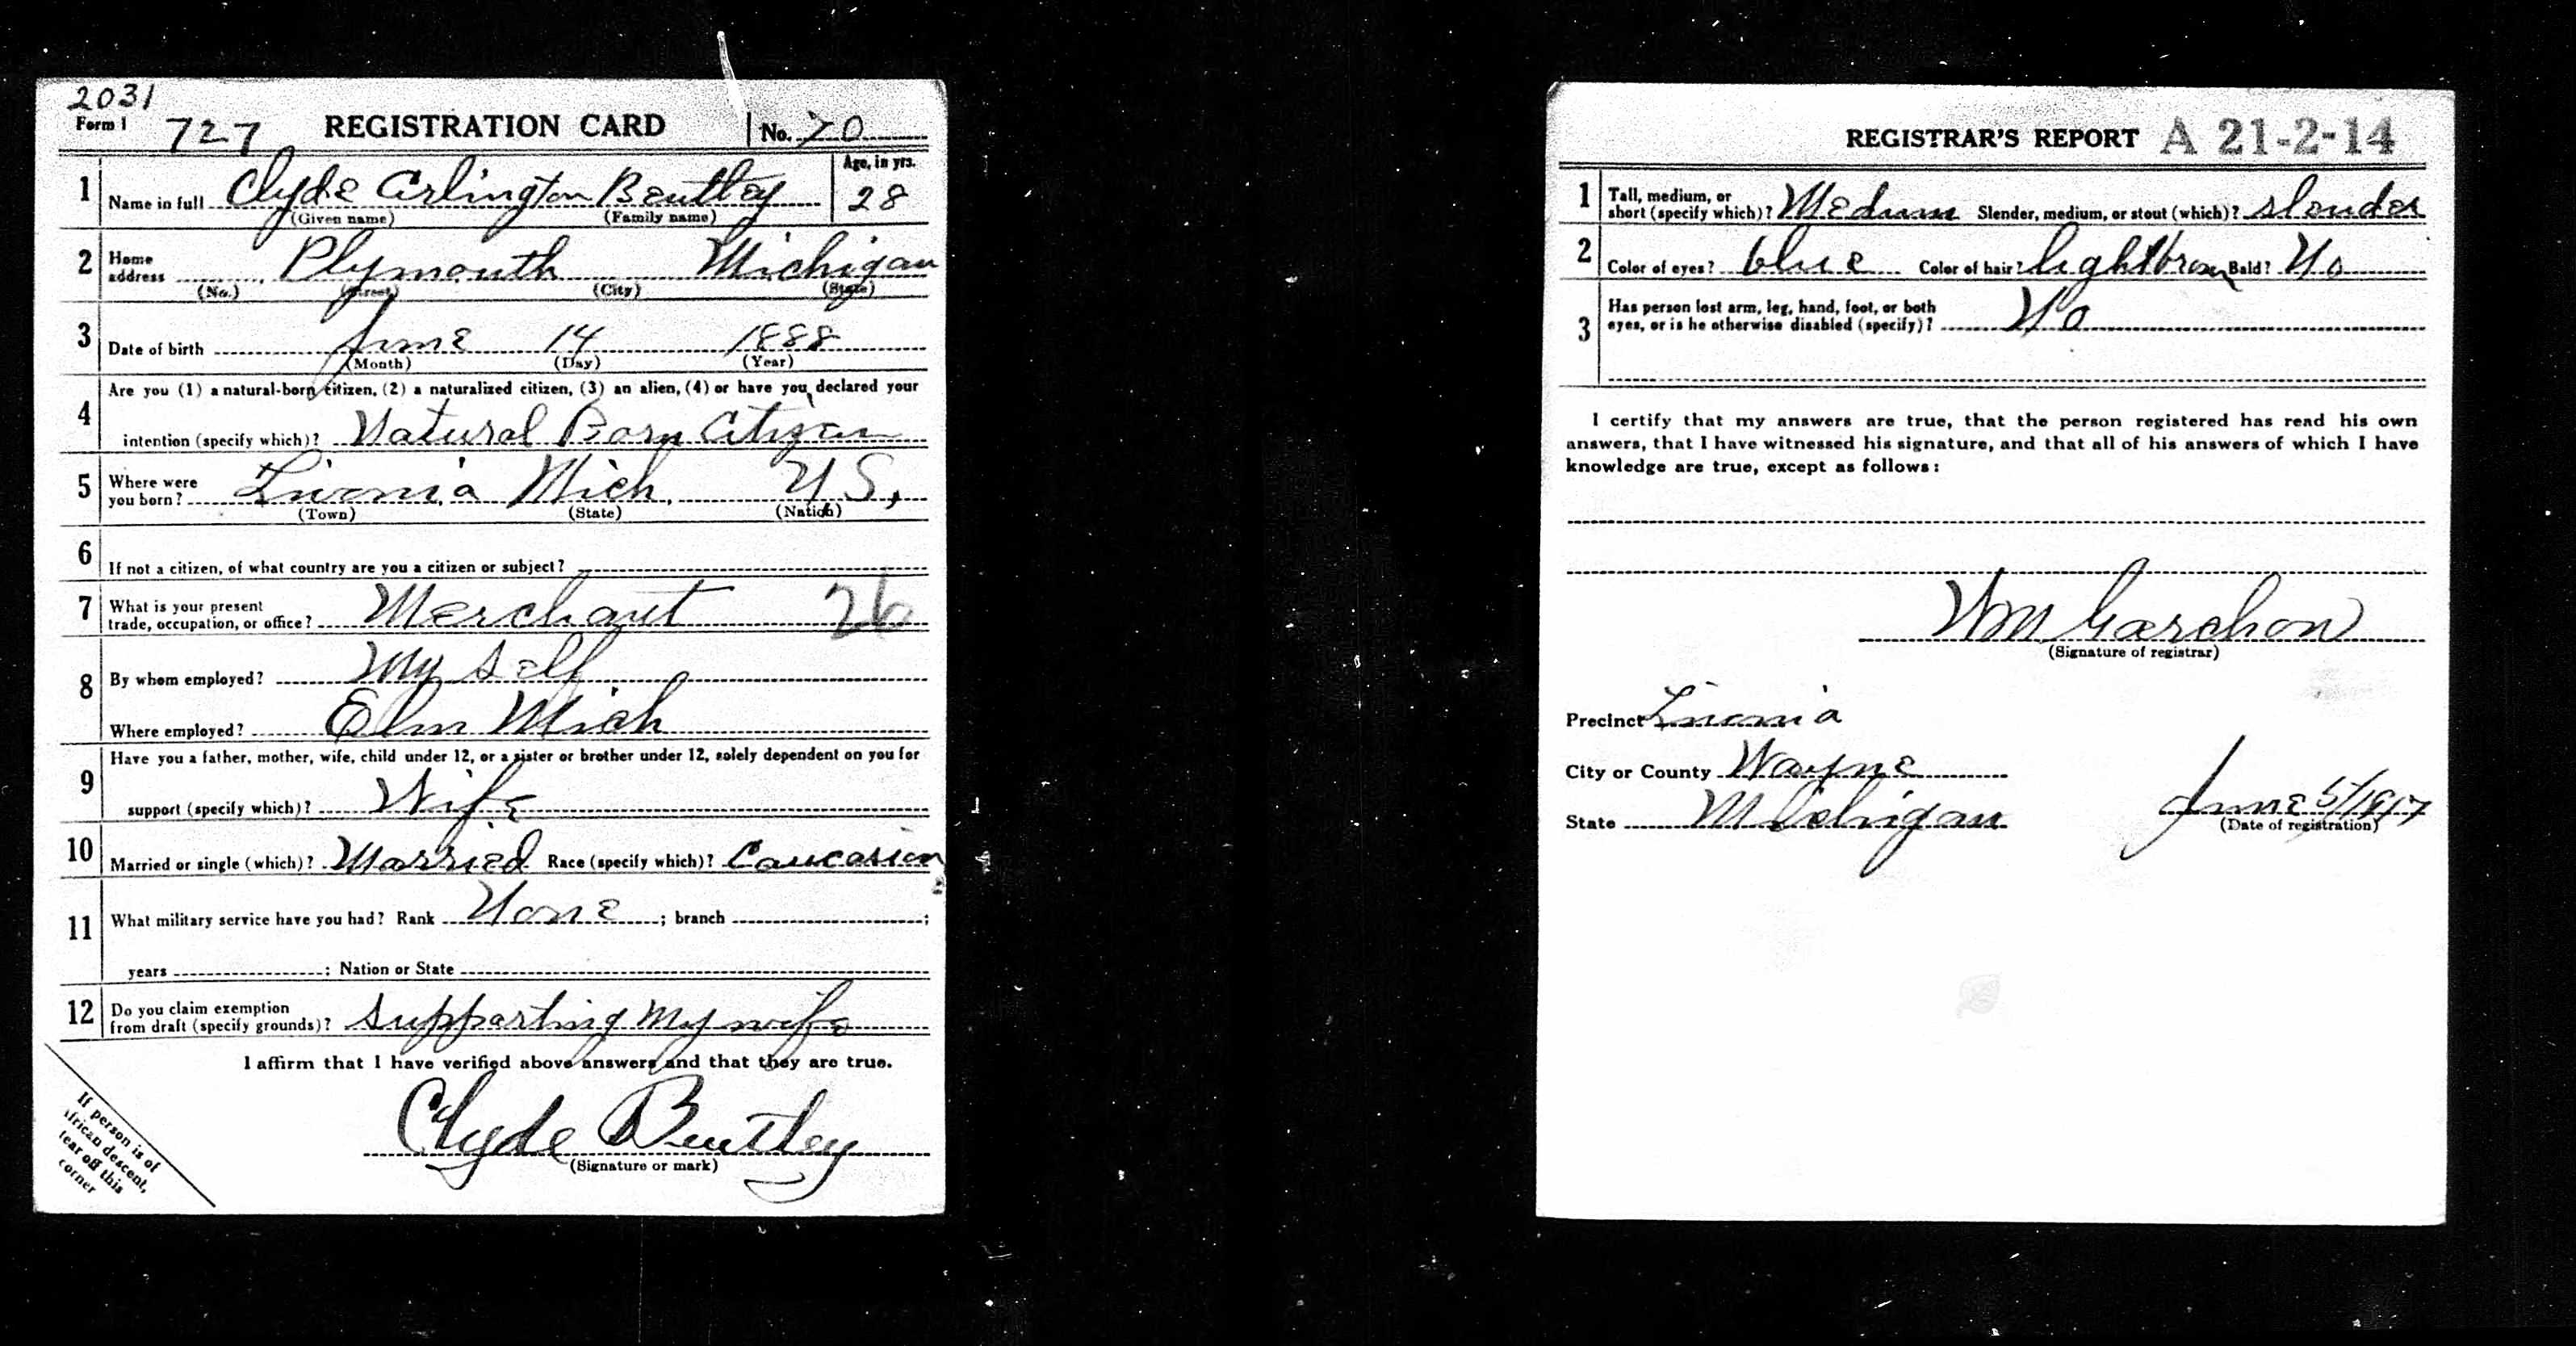 2031
Form 1 727 REGISTRATION CARD No. 70
1 Name in full Clyde Arlington Bentley Age, in yrs. 28
(Given name) (Family name)
2 Home address Plymouth Michigan
(No.) (Street) (City) (State)
3 Date of birth June 14 1888
(Month) (Day) (Year)
4 Are you (1) a natural-born citizen, (2) a naturalized citizen, (3) an alien, (4) or have you declared your
intention (specify which)? Natural Born Citizen
5 Where were you born? Livonia Mich. U.S.
(Town) (State) (Nation)
6 If not a citizen, of what country are you a citizen or subject?
7 What is your present trade, occupation, or office? Merchant 26
8 By whom employed? My Self
Where employed? Elm Mich
9 Have you a father, mother, wife, child under 12, or a sister or brother under 12, solely dependent on you for
support (specify which)? Wife
10 Married or single (which)? Married Race (specify which)? Caucasian
11 What military service have you had? Rank None ; branch ;
years ; Nation or State
12 Do you claim exemption from draft (specify grounds)? Supporting My wife
I affirm that I have verified above answers and that they are true.
Clyde Bentley
(Signature or mark)
If person is of
African descent,
tear off this
corner
REGISTRAR'S REPORT A 21-2-14
1 Tall, medium, or short (specify which)? Medium Slender, medium, or stout (which)? slender
2 Color of eyes? blue Color of hair? light brown Bald? No
3 Has person lost arm, leg, hand, foot, or both
eyes, or is he otherwise disabled (specify)? No
I certify that my answers are true, that the person registered has read his own
answers, that I have witnessed his signature, and that all of his answers of which I have
knowledge are true, except as follows:
Wm
(Signature of registrar)
Precinct Livonia
City or County Wayne
State Michigan June 5/1917
(Date of registration)